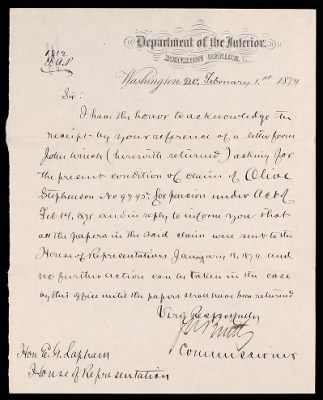 1812
Department of the Interior,
PENSION OFFICE,
Washington, D.C. February 1st 1879
Sir:
I have the honor to acknowledge the
receipt by your reference of a letter from
John (herewith returned) asking for
the present condition of claim of Olive
Stephenson No 9795. for pension under Act of
Feb 14, 1871, and in reply to inform you that
all the papers in the said claim were sent to the
House of Representatives January 13, 1879, and
no further action can be taken in the case
by this office until the papers shall have been returned
Very Respectfully
Commissioner
Hon E. G. Lapham
House of Representatives